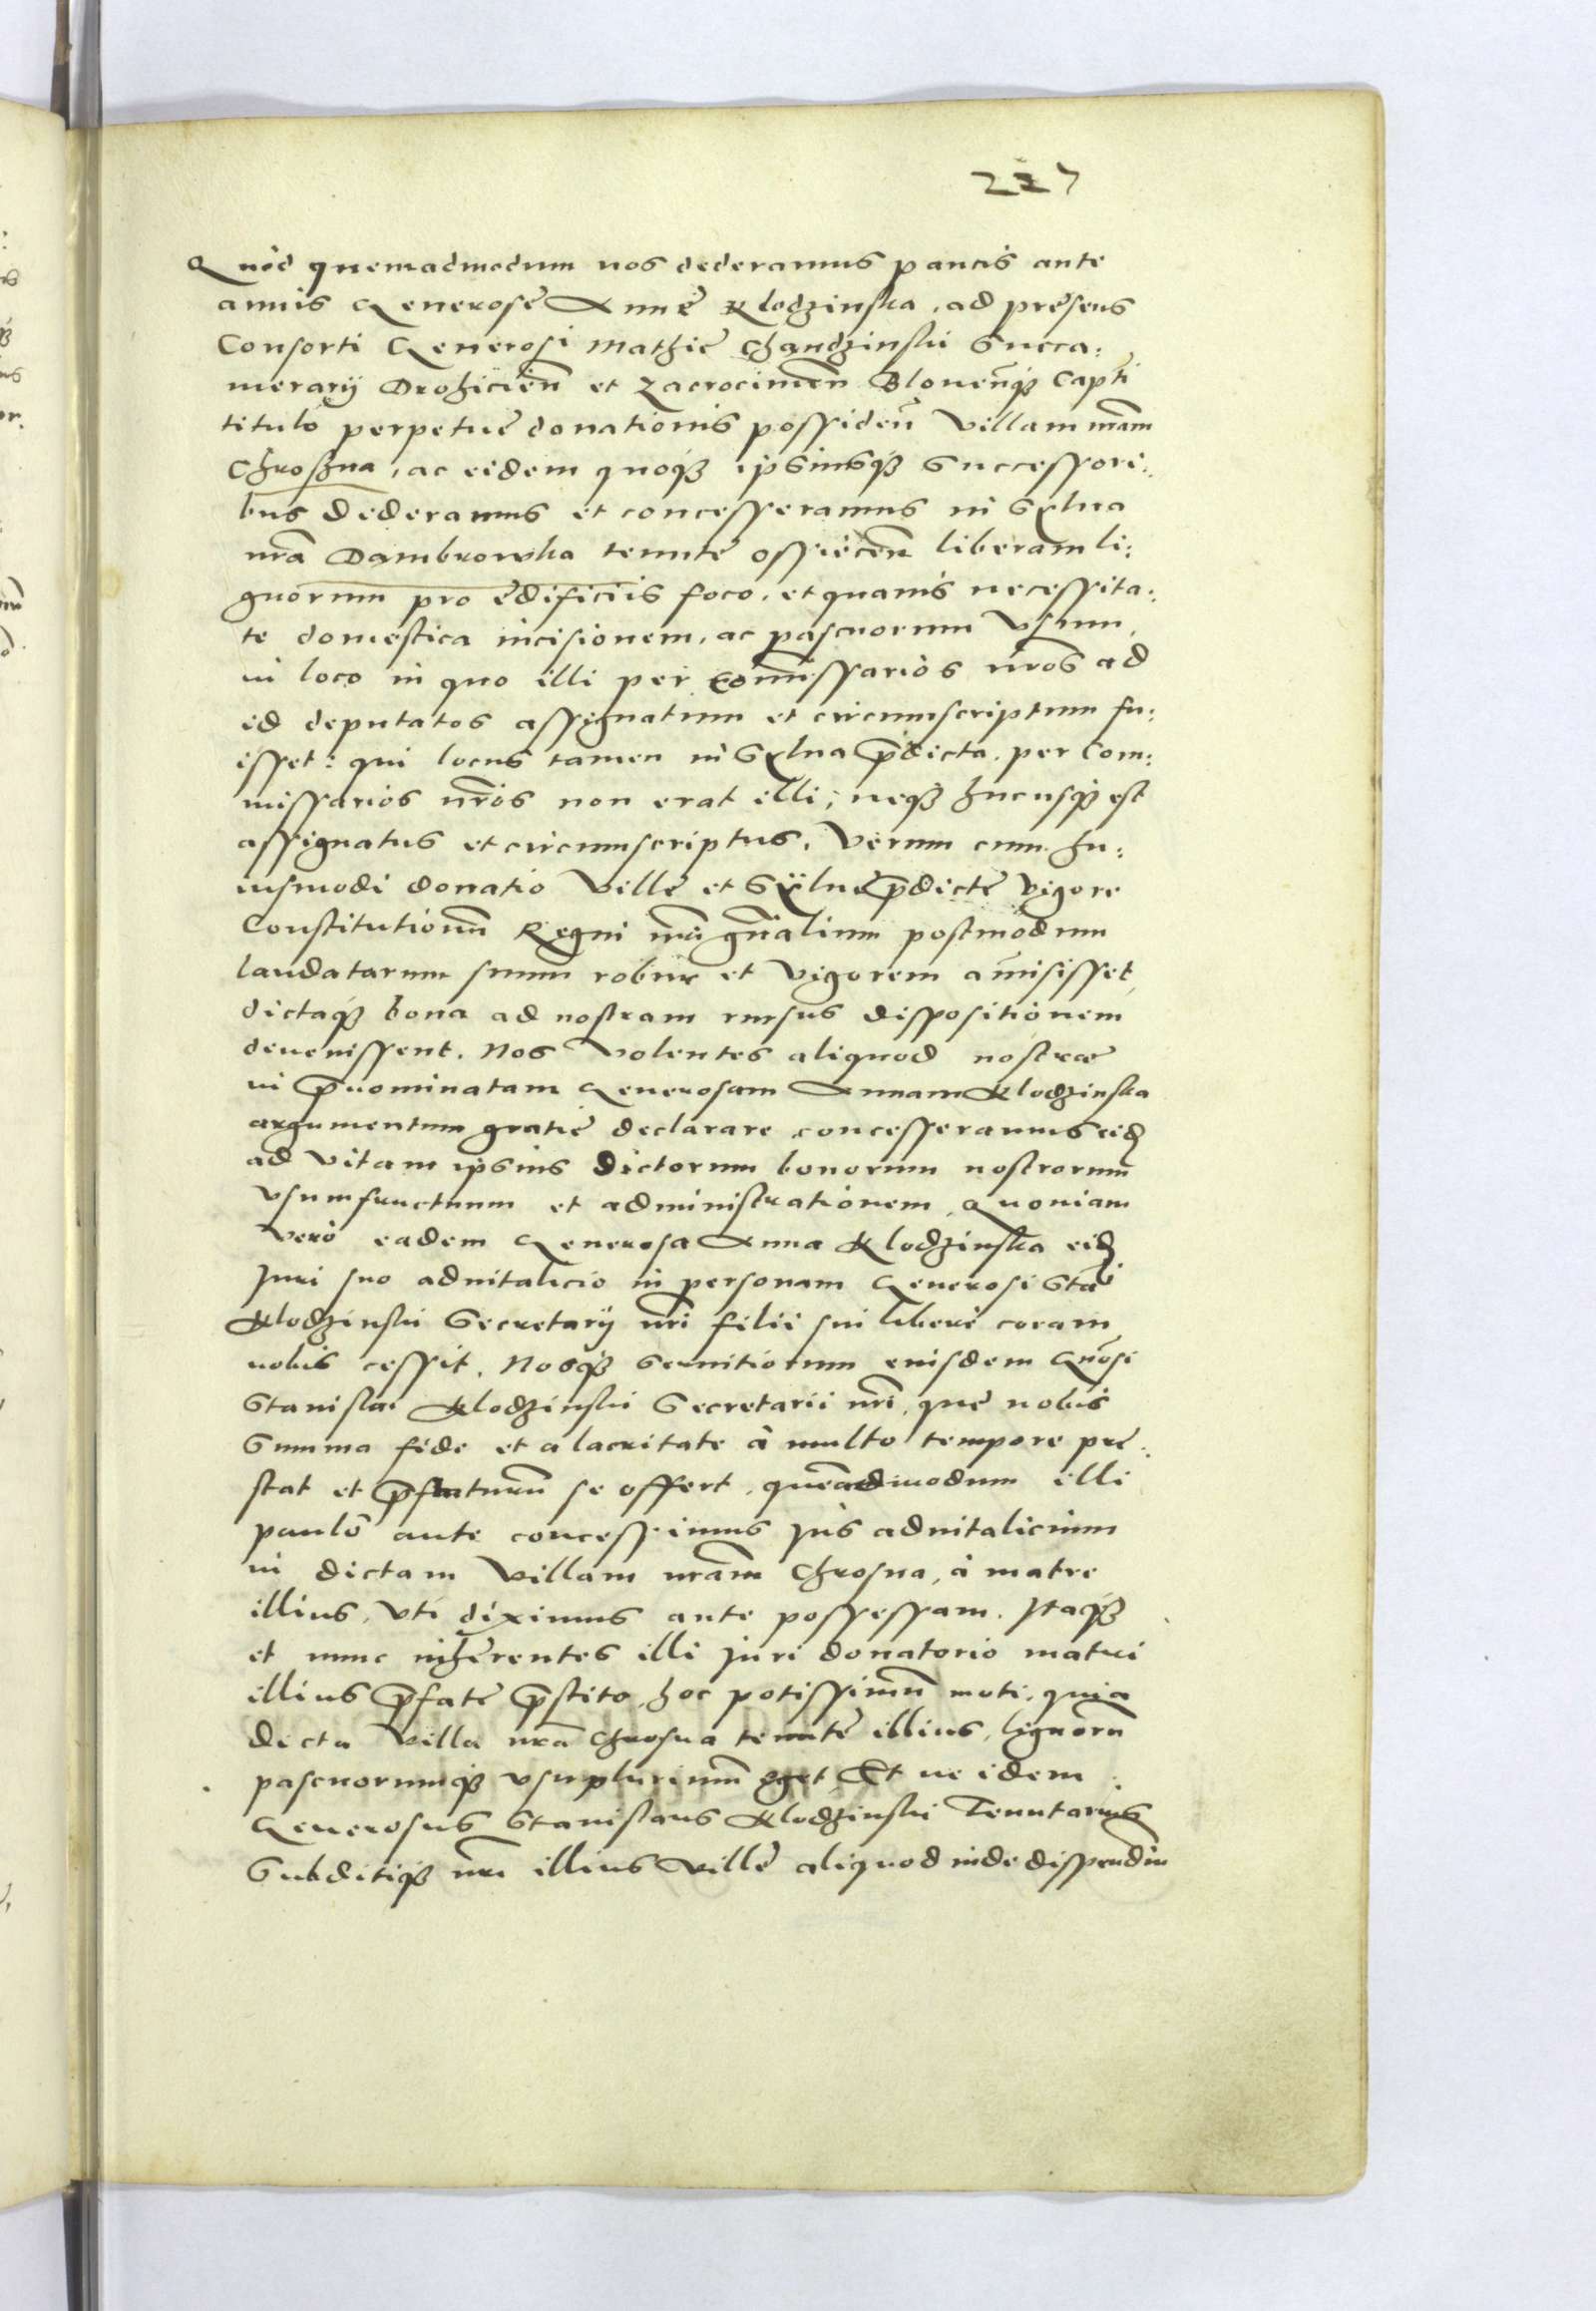 227
Quòd quemadmodum nos dederamus paucis ante
annis Generosę Annę Klodzinska, ad pręsens
Consorti Generosi Mathię Chandzinski Succa:
merarij Drohicien̄ et Zacrocimen̄ Blonen̄q₃ Capn̄ti
titulo perpetuę donationis possiden̄ Villam nr̄am
Chroszna, ac eidem quoq₃ ipsiusq₃ Successori:
bus dederamus et concesseramus in Sylua
nr̄a Dambrowka tenutę ossiecen̄ liberam li:
gnorum pro ędificiis foco, et quauis necessita:
te domestica incisionem, ac pascuorum Vsum,
in loco in quo illi per Com̄issarios nr̄os ad
id deputatos assignatum et circumscriptum fu:
isset: qui locus tamen in Sylua p̄dicta per Com:
missarios nr̄os non erat illi, neq₃ hucusq₃ est
assignatus et circumscriptus. Verum cum hu:
iusmodi donatio Villę et Syluę p̄dictę Vigore
Constitutionū Regni nr̄i gn̄alium postmodum
laudatarum suum robur et Vigorem amisisset,
dictaq₃ bona ad nostram rursus dispositionem
deuenissent. Nos Volentes aliquod nostrae
in p̄nominatam Generosam Annam Klodzinska
argumentum gratię declarare concesseramus eid̄
ad Vitam ipsius dictorum bonorum nostrorum
Vsumfructuum et administrationem. Quoniam
Vero eadem Generosa Anna Klodzinska eid̄
Juri suo aduitalicio in personam Generosi Stan̄i
Klodzinski Secretarij nr̄i filii sui liberè coram
nobis cessit. Nosq₃ Seruitiorum eiusdem Gn̄osi
Stanislai Klodzinski Secretarii nr̄i, quę nobis
Summa fide et alacritate à multo tempore prę:
stat et p̄staturū se offert, quēadmodum illi
paulo ante concessimus Jus aduitalicium
in dictam Villam nr̄am Chrosna, à matre
illius, Vti diximus ante possessam. Itaq₃
et nunc inhęrentes illi Juri donatorio matri
illius p̄fatę p̄stito, hoc potissimū moti, quia
dicta Villa nr̄a Chrosna tenutę illius, lignorū
pascuorumq₃ Vsu plurimū eget, Et ne idem
Generosus Stanislaus Klodzinski Tenutarius
Subditiq₃ nr̄i illius Villę aliquod inde dispendiū